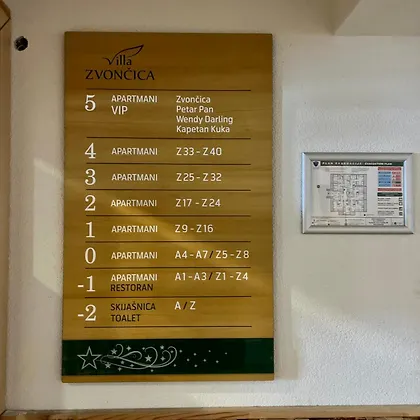 Villa
ZVONČICA
5 APARTMANI Zvončica
VIP Petar Pan
Wendy Darling
Kapetan Kuka
4 APARTMANI Z33 - Z40
3 APARTMANI Z25 - Z32
2 APARTMANI Z17 - Z24
1 APARTMANI Z9 - Z16
0 APARTMANI A4 - A7 / Z5 - Z8
-1 APARTMANI A1 - A3 / Z1 - Z4
RESTORAN
-2 SKIJAŠNICA A / Z
TOALET